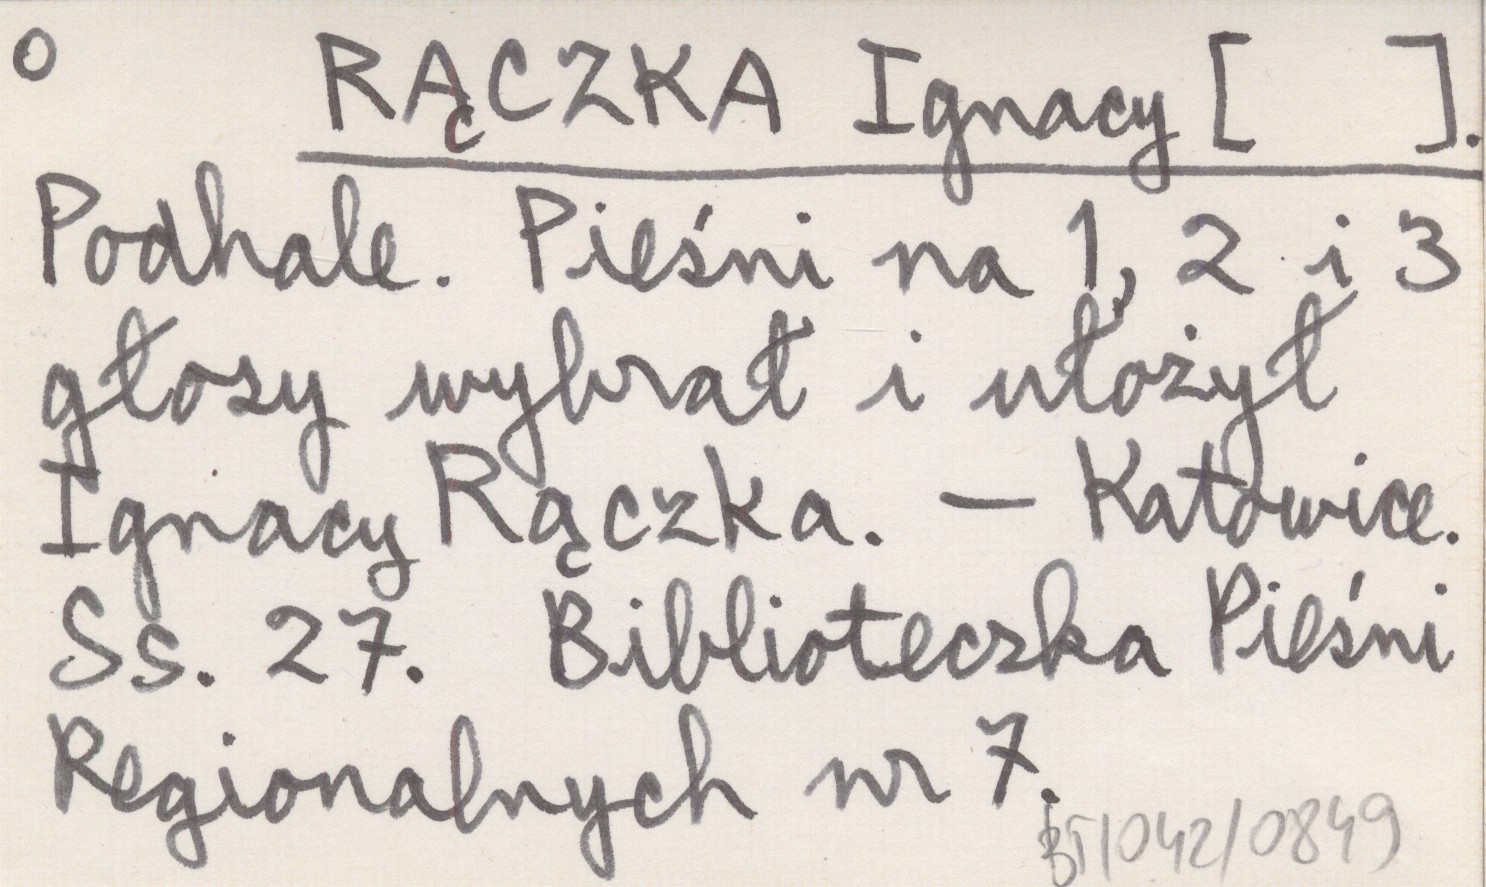 o RĄCZKA Ignacy [ ].
Podhale. Pieśni na 1, 2 i 3
głosy wybrał i ułożył
Ignacy Rączka. — Katowice.
Ss. 27. Biblioteczka Pieśni
Regionalnych nr 7.
BT/042/0849